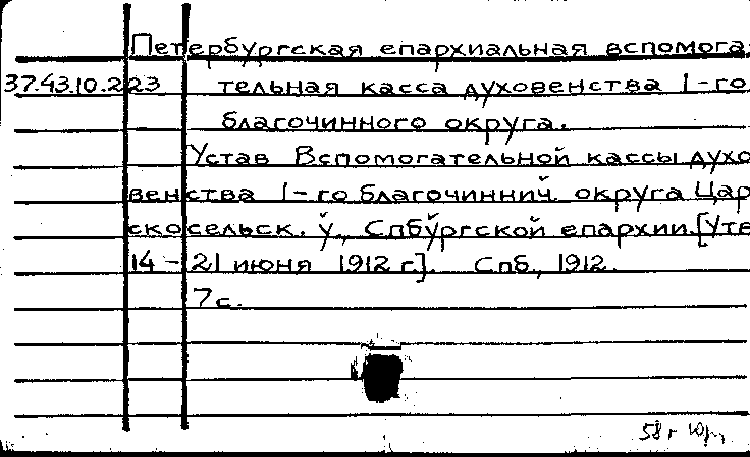 Петербургская епархиальная вспомога
37.43.10.223 тельная касса духовенства 1-го
благочинного округа.
Устав Вспомогательной кассы духо
венства 1-го благочиннич. округа Цар
скосельск. у., Спбургской епархии.[Утв
14-21 июня 1912 г.]. Спб., 1912.
7с.
58 г